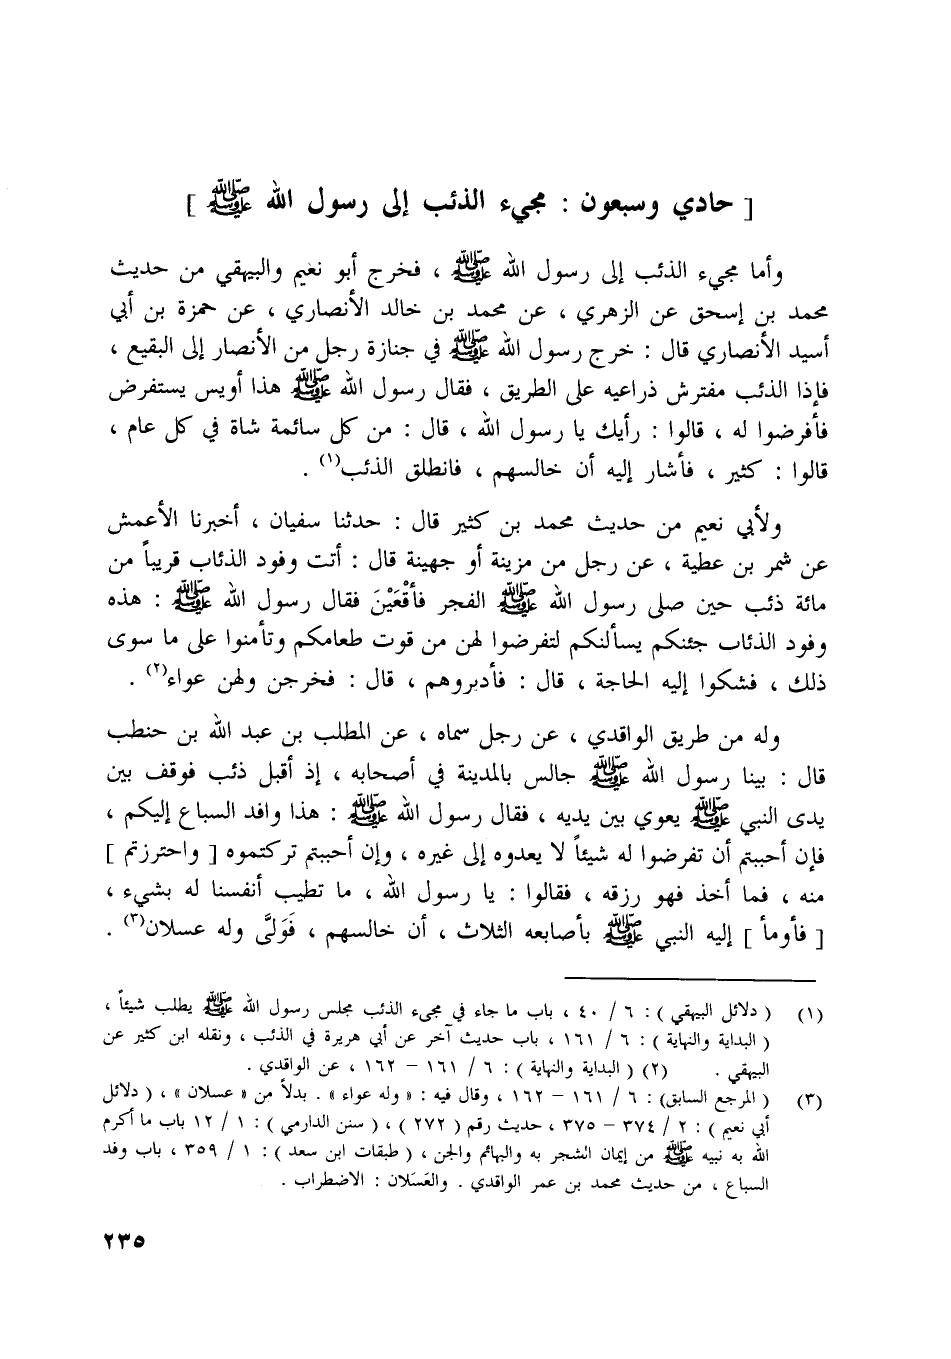 [ حادي وسبعون : مجيء الذئب إلى رسول الله ﷺ ]
وأما مجيء الذئب إلى رسول الله ﷺ ، فخرج أبو نعيم والبيهقي من حديث
محمد بن إسحق عن الزهري ، عن محمد بن خالد الأنصاري ، عن حمزة بن أبي
أسيد الأنصاري قال : خرج رسول الله ﷺ في جنازة رجل من الأنصار إلى البقيع ،
فإذا الذئب مفترش ذراعيه على الطريق ، فقال رسول الله ﷺ هذا أويس يستفرض
فأفرضوا له ، قالوا : رأيك يا رسول الله ، قال : من كل سائمة شاة في كل عام ،
قالوا : كثير ، فأشار إليه أن خالسهم ، فانطلق الذئب(١) .
ولأبي نعيم من حديث محمد بن كثير قال : حدثنا سفيان ، أخبرنا الأعمش
عن شمر بن عطية ، عن رجل من مزينة أو جهينة قال : أتت وفود الذئاب قريباً من
مائة ذئب حين صلى رسول الله ﷺ الفجر فأقْعَيْنَ فقال رسول الله ﷺ : هذه
وفود الذئاب جئنكم يسألنكم لتفرضوا لهن من قوت طعامكم وتأمنوا على ما سوى
ذلك ، فشكوا إليه الحاجة ، قال : فأدبروهم ، قال : فخرجن ولهن عواء(٢) .
وله من طريق الواقدي ، عن رجل سماه ، عن المطلب بن عبد الله بن حنطب
قال : بينا رسول الله ﷺ جالس بالمدينة في أصحابه ، إذ أقبل ذئب فوقف بين
يدى النبي ﷺ يعوي بين يديه ، فقال رسول الله ﷺ : هذا وافد السباع إليكم ،
فإن أحببتم أن تفرضوا له شيئاً لا يعدوه إلى غيره ، وإن أحببتم تركتموه [ واحترزتم ]
منه ، فما أخذ فهو رزقه ، فقالوا : يا رسول الله ، ما تطيب أنفسنا له بشيء ،
[ فأومأ ] إليه النبي ﷺ بأصابعه الثلاث ، أن خالسهم ، فَولَّى وله عسلان(٣) .
(١) ( دلائل البيهقي ) : ٦ / ٤٠ ، باب ما جاء في مجىء الذئب مجلس رسول الله ﷺ يطلب شيئاً ،
( البداية والنهاية ) : ٦ / ١٦١ ، باب حديث آخر عن أبي هريرة في الذئب ، ونقله ابن كثير عن
البيهقي . (٢) ( البداية والنهاية ) : ٦ / ١٦١ – ١٦٢ ، عن الواقدي .
(٣) ( المرجع السابق ) : ٦ / ١٦١ – ١٦٢ ، وقال فيه : « وله عواء » . بدلاً من « عسلان » ، ( دلائل
أبي نعيم ) : ٢ / ٣٧٤ – ٣٧٥ ، حديث رقم ( ٢٧٢ ) ، ( سنن الدارمي ) : ١ / ١٢ باب ما أكرم
الله به نبيه ﷺ من إيمان الشجر به والبهائم والجن ، ( طبقات ابن سعد ) : ١ / ٣٥٩ ، باب وفد
السباع ، من حديث محمد بن عمر الواقدي . والعَسَلان : الاضطراب .
٢٣٥